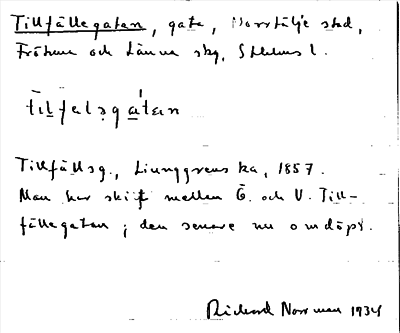 Tillfällegatan, gata, Norrtälje stad,
Frötuna och Länna skg, Sthlms l.
tilfelsgatan
Tillfällsg., Ljunggrens ka, 1857.
Man har skilt mellan Ö. och V. Till-
fällegatan; den senare nu omdöpt.
Rickard Norrman 1934